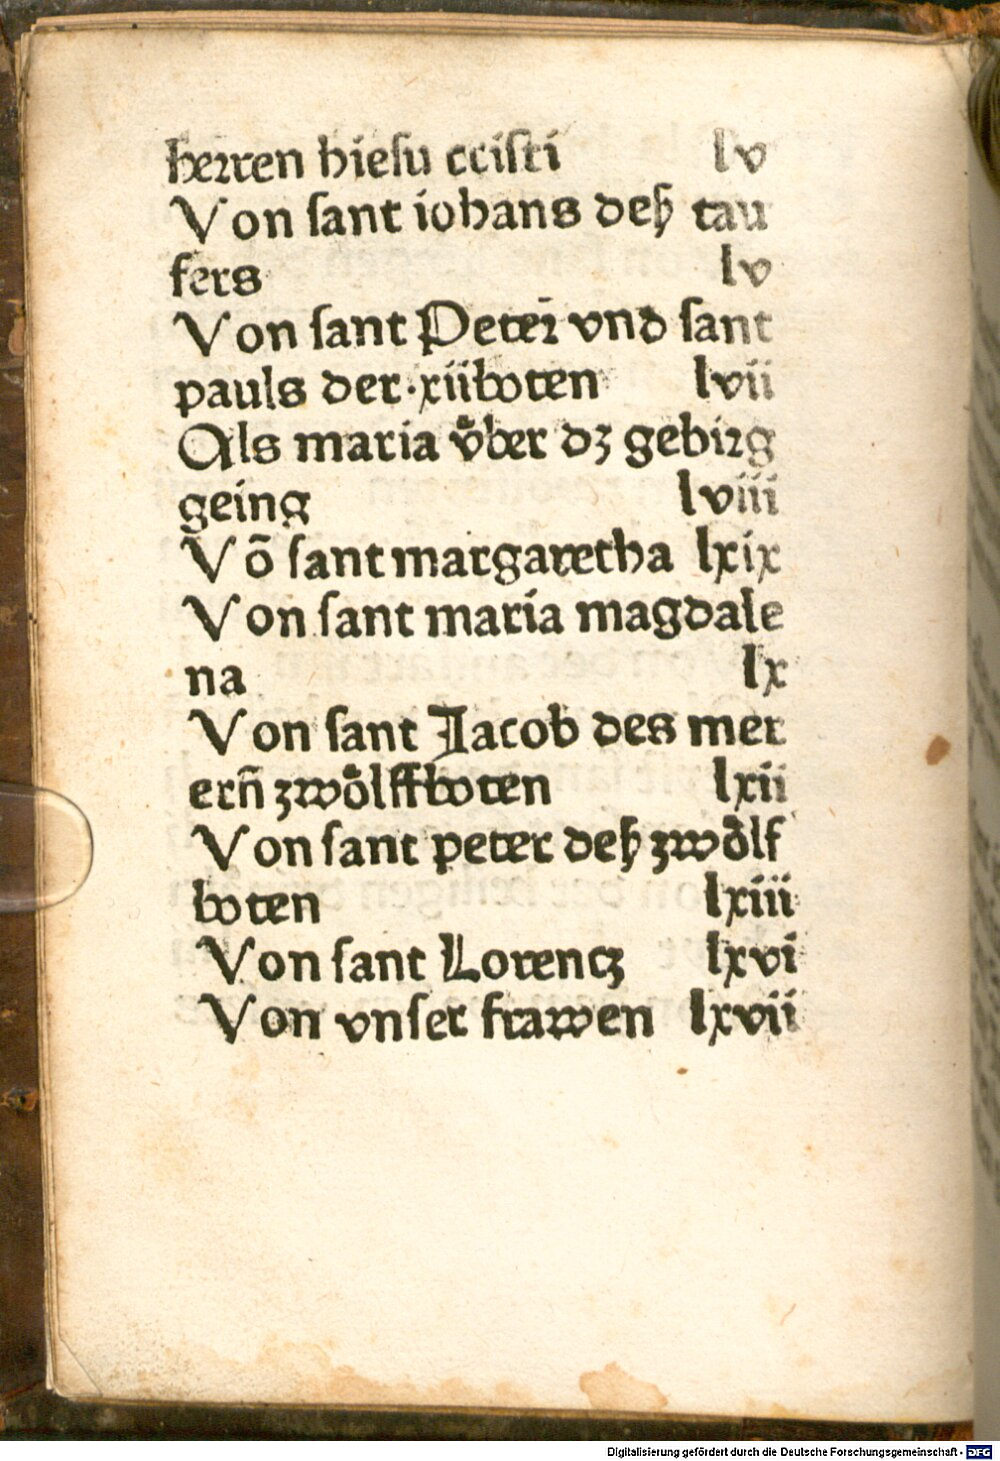 herren hiesu ccisti lv
Von sant iohans deß tau
fers lv
Von sant Peter vnd sant
pauls der·xiiboten lvii
Als maria vͤber dꝫ gebirg
geing lviii
Võ sant margaretha lxix
Von sant maria magdale
na lx
Von sant Jacob des mer
ern̄ zwoͤlffboten lxii
Von sant peter deß zwoͤlf
boten lxiii
Von sant Lorencz lxvi
Von vnser frawen lxvii
Digitalisierung gefördert durch die Deutsche Forschungsgemeinschaft - DFG